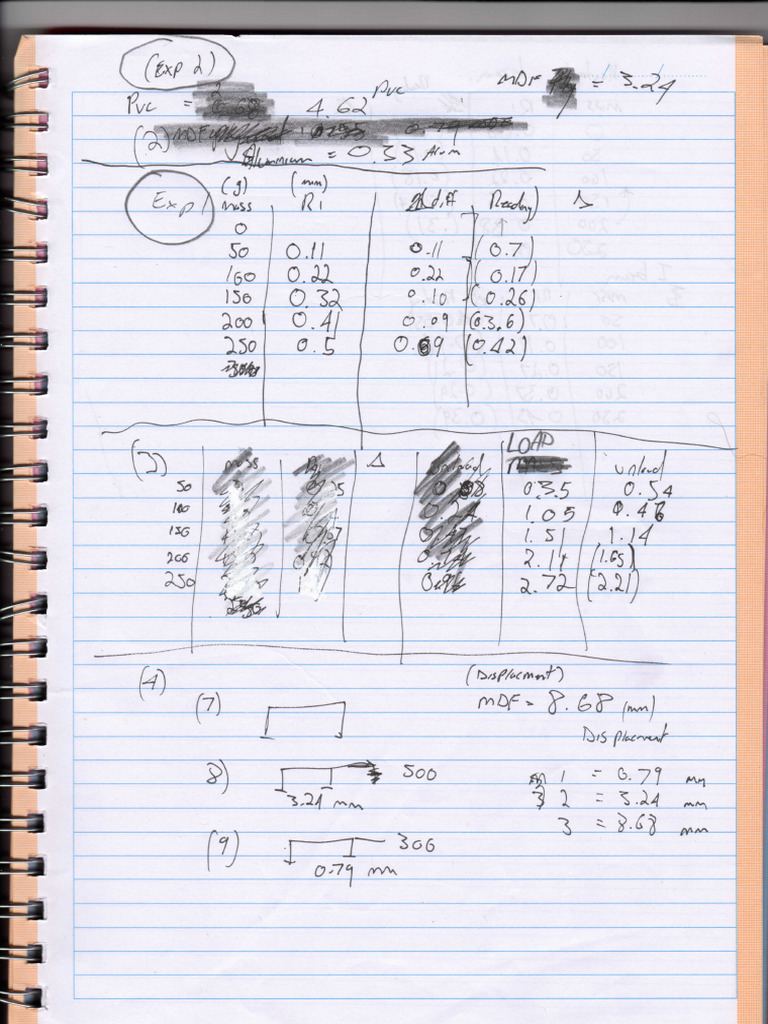 (Exp 2)
Pvc = 4.62 Pvc MDF = 3.24
(2) Aluminium = 0.33 Alum
Exp 1
(g) (mm)
mass R1 diff Reading Δ
0
50 0.11 0.11 (0.7)
100 0.22 0.22 (0.17)
150 0.32 0.10 (0.26)
200 0.41 0.09 (03.6)
250 0.5 0.09 (0.42)
(3) Δ LOAD unload
50 0.35 0.54
100 1.05 0.46
150 1.51 1.14
200 2.14 (1.65)
250 2.72 (2.21)
(4) (Displacment)
(7) MDF = 8.68 (mm)
Displacment
8) 500 1 = 0.79 mm
3.24 mm 2 = 3.24 mm
3 = 8.68 mm
(9) 300
0.79 mm